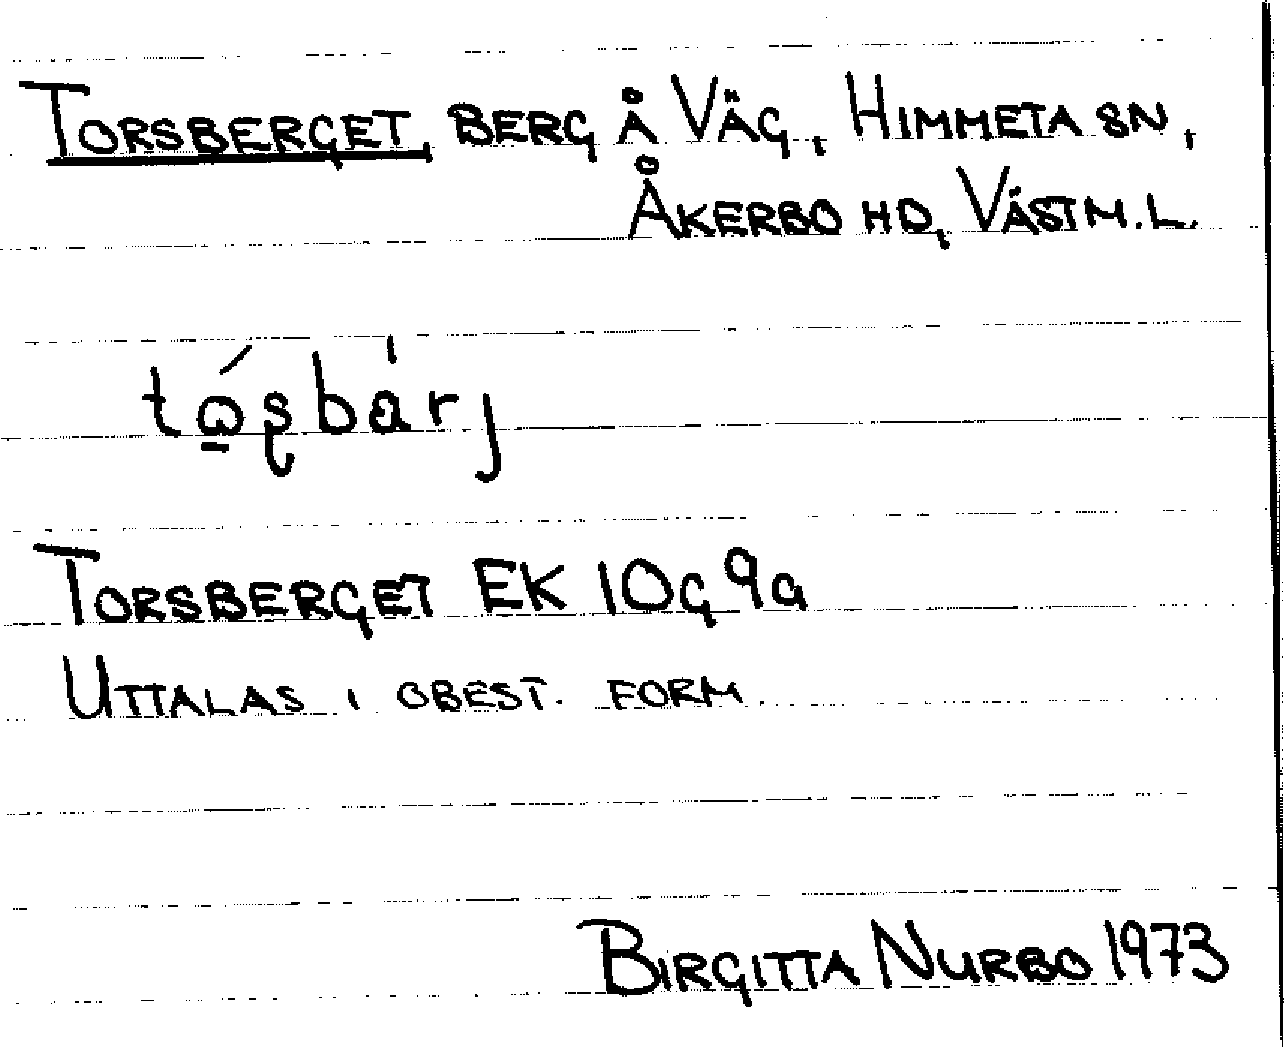 TORSBERGET, BERG Å VÄG, HIMMETA SN,
ÅKERBO HD, VÄSTM. L.
TORSBERGET EK 10G 9a
UTTALAS I OBEST. FORM.
BIRGITTA NURBO 1973